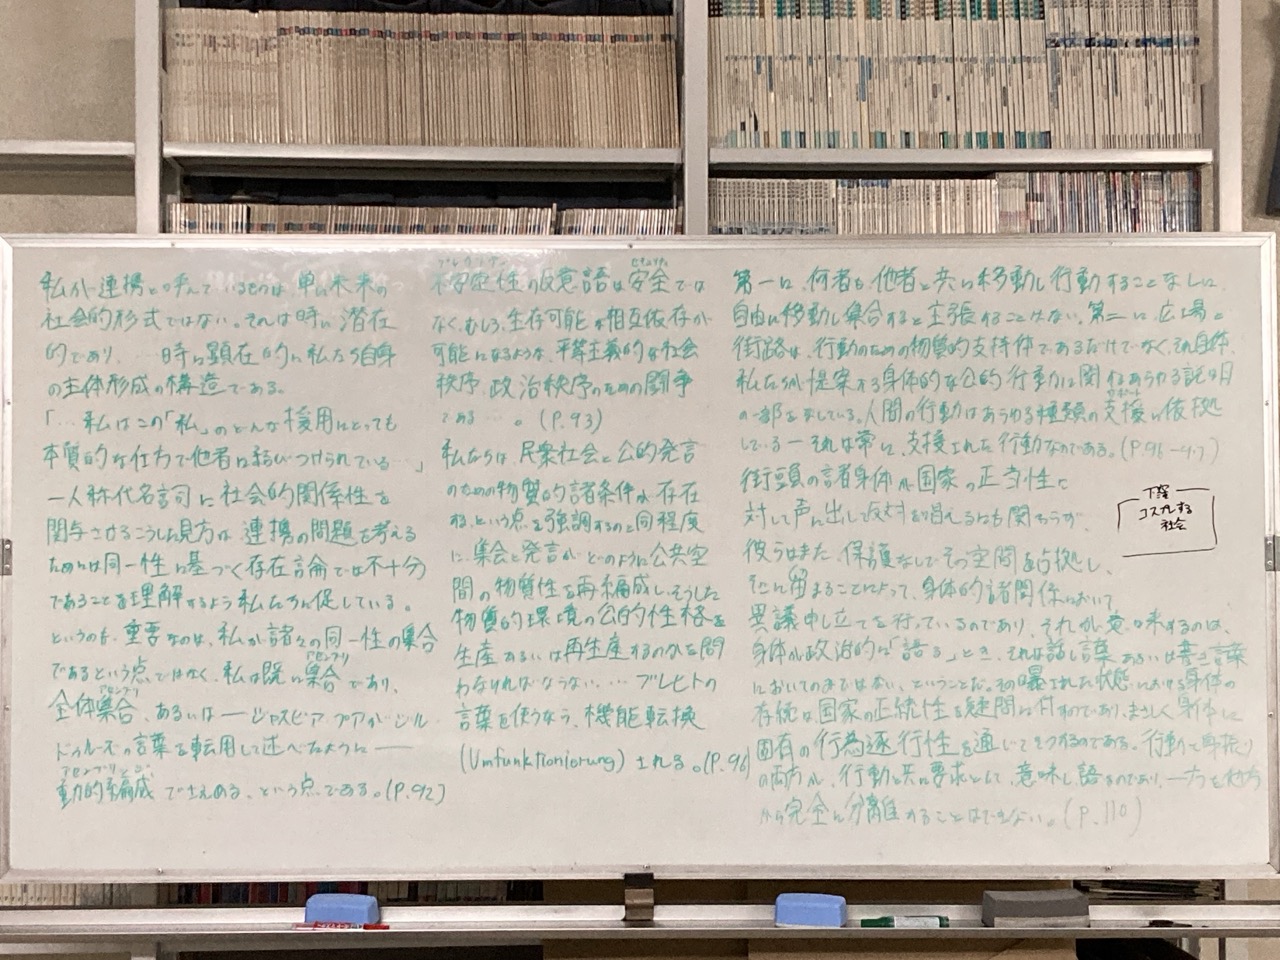 私が連携と呼んでいるものは、単に未来の
社会的形式ではない。それは時に潜在
的であり、…時に顕在的に私たち自身
の主体形成の構造である。
「…私はこの「私」のどんな援用にとっても
本質的な仕方で他者に結びつけられている…」
一人称代名詞に社会的関係性を
関与させるこうした見方は、連携の問題を考える
ためには同一性に基づく存在論では不十分
であることを理解するよう私たちに促している。
というのも、重要なのは、私が諸々の同一性の集合
であるという点ではなく、私は既に集合であり、
アセンブリ
全体集合、あるいは──ジャスビア・プアがジル・
アセンブリ
ドゥルーズの言葉を転用して述べたように──
動的編成でさえある、という点である。(P.92)
プレカリテ
不安定性の反意語は安全では
セキュリティ
なく、むしろ、生存可能な相互依存が
可能になるような、平等主義的な社会
秩序、政治秩序のための闘争
である…。(P.93)
私たちは、民衆社会と公的発言
のための物質的諸条件が存在
する、という点を強調するのと同程度
に、集会と発言がどのように公共空
間の物質性を再編成し、そうした
物質的環境の公的性格を
生産あるいは再生産するのかを問
わなければならない.…ブレヒトの
言葉を使うなら、機能転換
(Umfunktionierung)される。(P.96)
第一に、何者も他者と共に移動し行動することなしに
自由に移動し集合すると主張することはない。第二に、広場と
街路は、行動のための物質的支持体であるだけでなく、それ自体、
私たちが提案する身体的な公的行動に関するあらゆる説明
の一部をなしている。人間の行動はあらゆる種類の支援に依拠
サポート
している─それは常に、支援された行動なのである。(P.96-97)
街頭の諸身体が国家の正当性に
対して声に出して反対を唱えるにも関わらず、
彼らはまた、保護なしでその空間を占拠し、
そこに留まることによって、身体的諸関係において
異議申し立てを行っているのであり、それが意味するのは、
身体が政治的に「語る」とき、それは話し言葉あるいは書き言葉
においてのみではない、ということだ。その曝された状態における身体の
存続は国家の正統性を疑問に付すのであり、まさしく身体に
固有の行為遂行性を通じてそうするのである。行動と身振り
の両方が、行動と共に要求として、意味し語るのであり、一方を他方
から完全に分離することはできない。(P.110)
下窪
コスプレする
社会